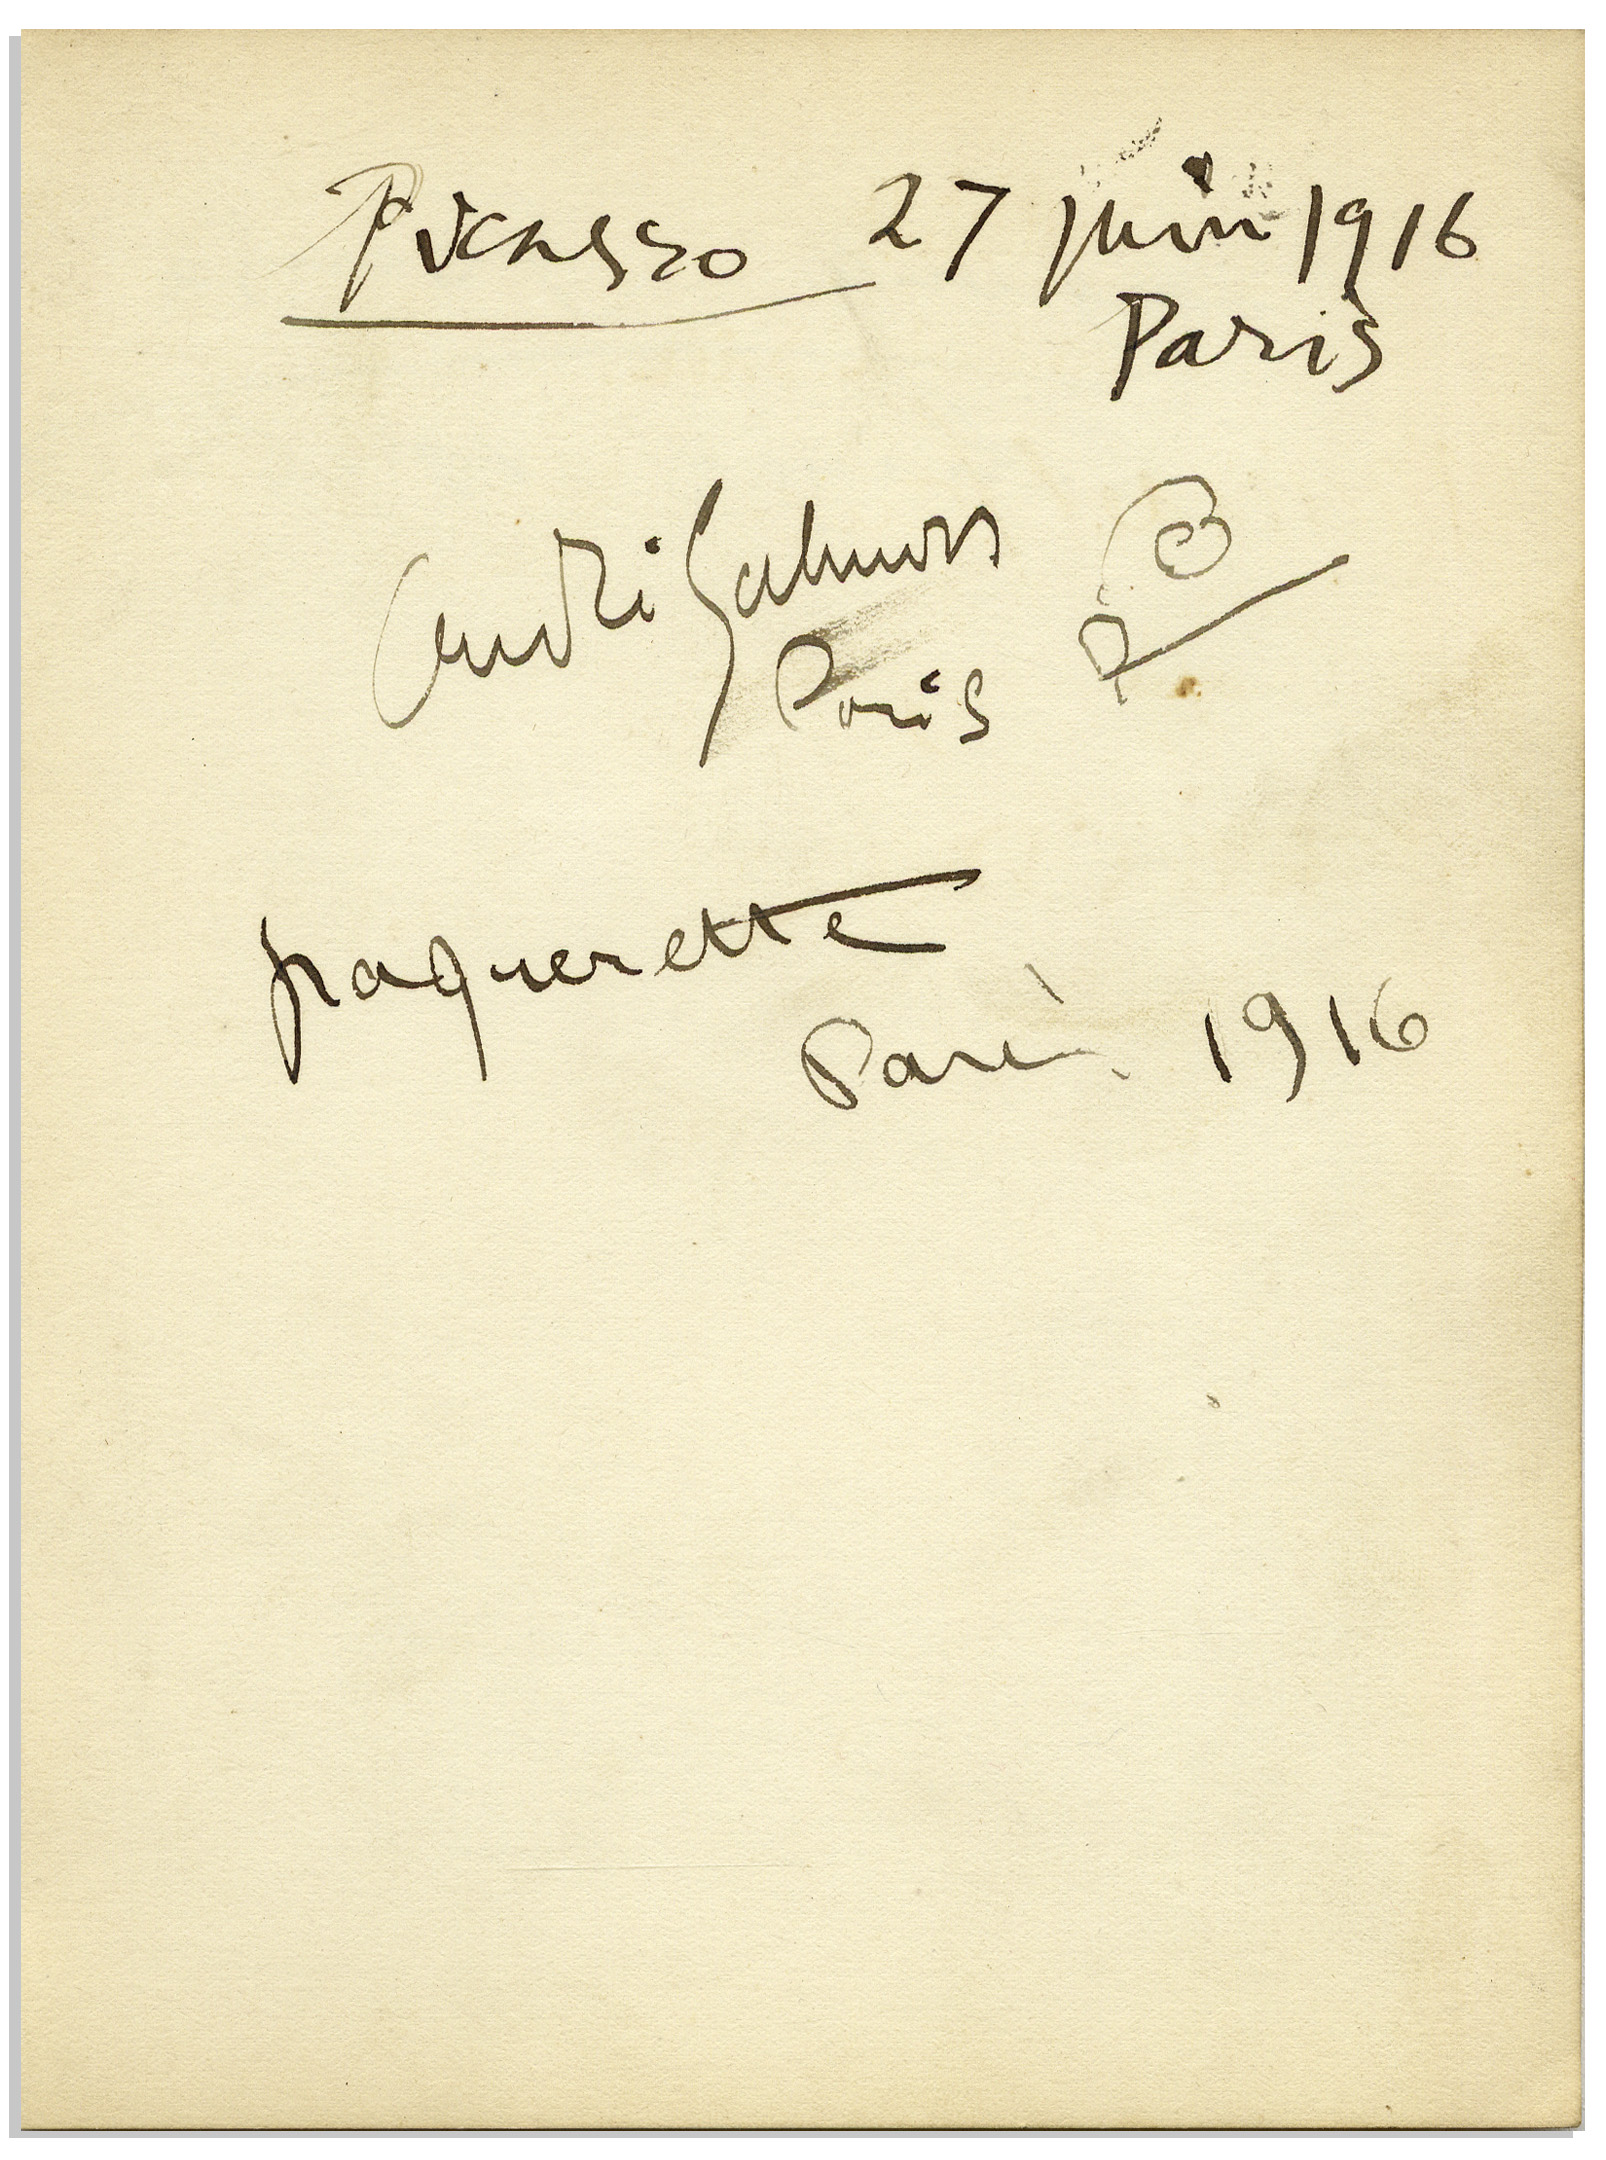 Picasso 27 juin 1916
Paris
André Salmon
Paris
paquerette
Paris 1916